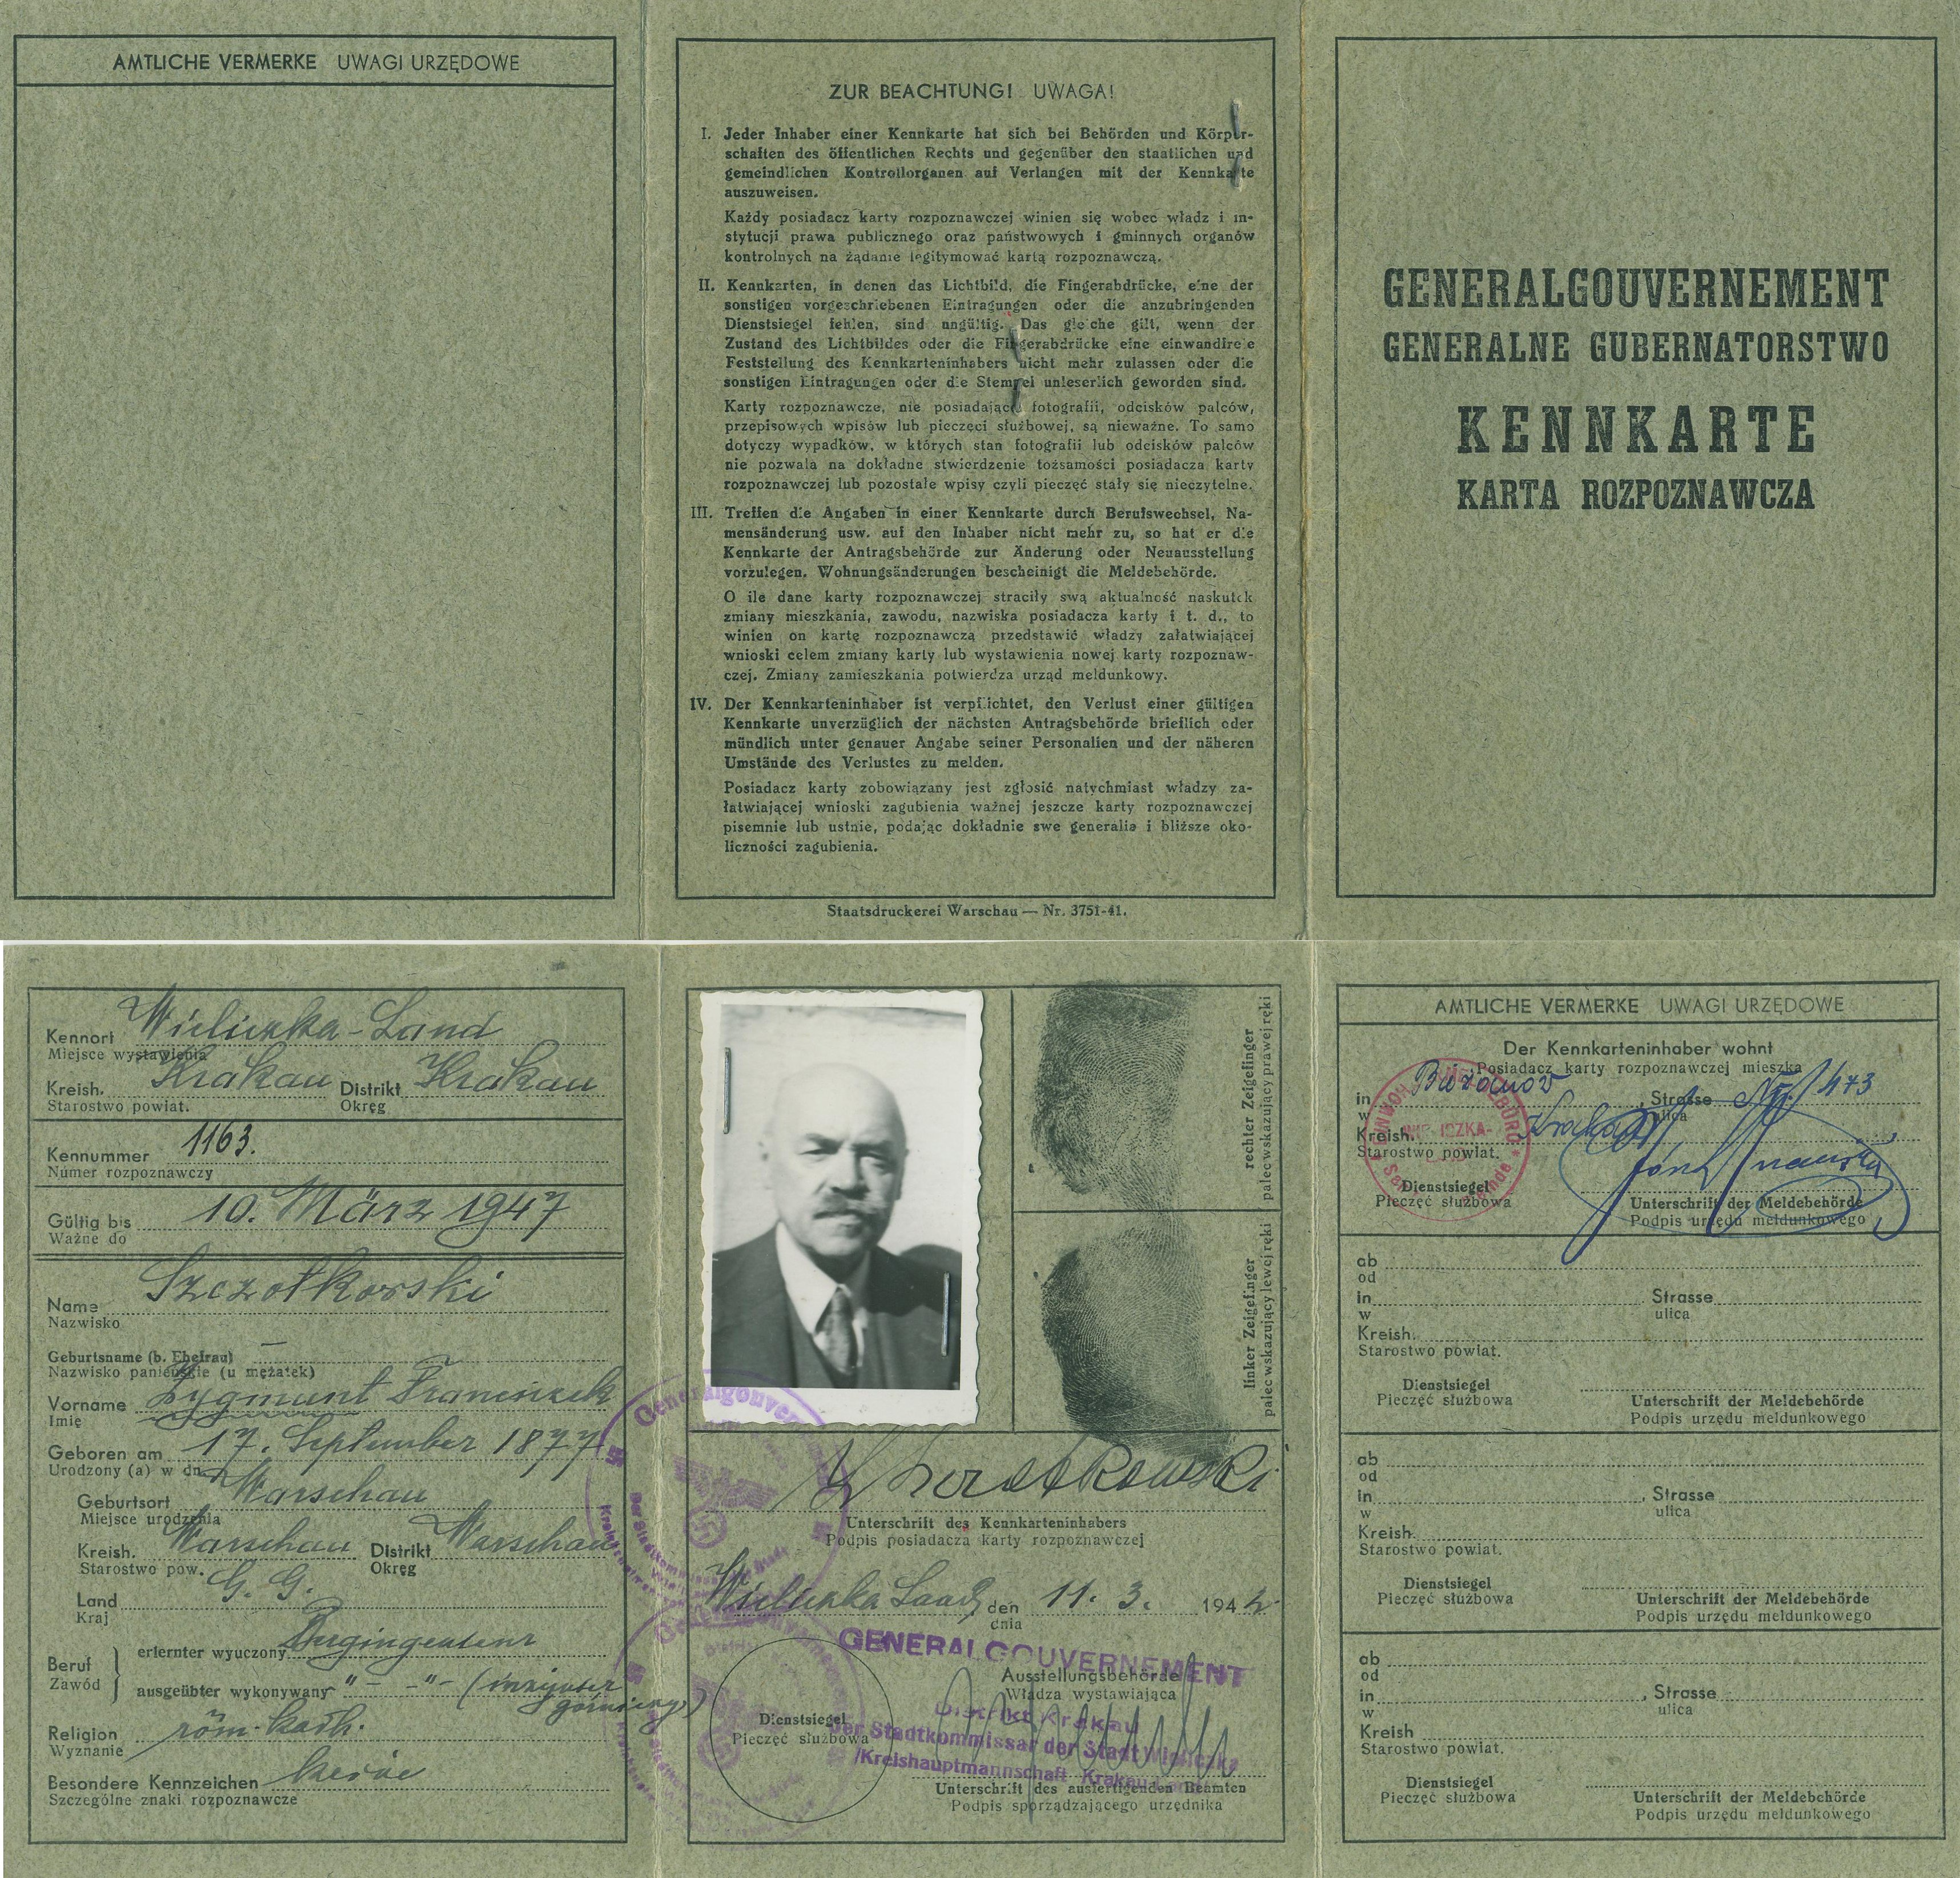 AMTLICHE VERMERKE UWAGI URZĘDOWE
ZUR BEACHTUNG! UWAGA!
I. Jeder Inhaber einer Kennkarte hat sich bei Behörden und Körper-
schaften des öffentlichen Rechts und gegenüber den staatlichen und
gemeindlichen Kontrollorganen auf Verlangen mit der Kennkarte
auszuweisen.
Każdy posiadacz karty rozpoznawczej winien się wobec władz i in-
stytucji prawa publicznego oraz państwowych i gminnych organów
kontrolnych na żądanie legitymować kartą rozpoznawczą.
II. Kennkarten, in denen das Lichtbild, die Fingerabdrücke, eine der
sonstigen vorgeschriebenen Eintragungen oder die anzubringenden
Dienstsiegel fehlen, sind ungültig. Das gleiche gilt, wenn der
Zustand des Lichtbildes oder die Fingerabdrücke eine einwandfreie
Feststellung des Kennkarteninhabers nicht mehr zulassen oder die
sonstigen Eintragungen oder die Stempel unleserlich geworden sind.
Karty rozpoznawcze, nie posiadające fotografii, odcisków palców,
przepisowych wpisów lub pieczęci służbowej, są nieważne. To samo
dotyczy wypadków, w których stan fotografii lub odcisków palców
nie pozwala na dokładne stwierdzenie tożsamości posiadacza karty
rozpoznawczej lub pozostałe wpisy czyli pieczęć stały się nieczytelne.
III. Treffen die Angaben in einer Kennkarte durch Berufswechsel, Na-
mensänderung usw. auf den Inhaber nicht mehr zu, so hat er die
Kennkarte der Antragsbehörde zur Änderung oder Neuausstellung
vorzulegen. Wohnungsänderungen bescheinigt die Meldebehörde.
O ile dane karty rozpoznawczej straciły swą aktualność naskutek
zmiany mieszkania, zawodu, nazwiska posiadacza karty i t. d., to
winien on kartę rozpoznawczą przedstawić władzy załatwiającej
wnioski celem zmiany karty lub wystawienia nowej karty rozpoznaw-
czej. Zmiany zamieszkania potwierdza urząd meldunkowy.
IV. Der Kennkarteninhaber ist verpflichtet, den Verlust einer gültigen
Kennkarte unverzüglich der nächsten Antragsbehörde brieflich oder
mündlich unter genauer Angabe seiner Personalien und der näheren
Umstände des Verlustes zu melden.
Posiadacz karty zobowiązany jest zgłosić natychmiast władzy za-
łatwiającej wnioski zagubienia ważnej jeszcze karty rozpoznawczej
pisemnie lub ustnie, podając dokładnie swe generalia i bliższe oko-
liczności zagubienia.
Staatsdruckerei Warschau — Nr. 3751-41.
GENERALGOUVERNEMENT
GENERALNE GUBERNATORSTWO
KENNKARTE
KARTA ROZPOZNAWCZA
Kennort Wieliczka-Land
Miejsce wystawienia
Kreish. Krakau Distrikt Krakau
Starostwo powiat. Okręg
Kennummer 1163.
Numer rozpoznawczy
Gültig bis 10. März 1947
Ważne do
Name Szczotkowski
Nazwisko
Geburtsname (b. Ehefrau) —
Nazwisko panieńskie (u mężatek)
Vorname Zygmunt Franciszek
Imię
Geboren am 17. September 1877
Urodzony (a) w dn.
Geburtsort Warschau
Miejsce urodzenia
Kreish. Warschau Distrikt Warschau
Starostwo pow. Okręg
Land G. G.
Kraj
Beruf erlernter wyuczony Bergingenieur
Zawód ausgeübter wykonywany "- -"- (inżynier
górniczy)
Religion röm.-kath.
Wyznanie
Besondere Kennzeichen keine
Szczególne znaki rozpoznawcze
rechter Zeigefinger
palec wskazujący prawej ręki
linker Zeigefinger
palec wskazujący lewej ręki
Z Szczotkowski
Unterschrift des Kennkarteninhabers
Podpis posiadacza karty rozpoznawczej
Wieliczka Land, den 11. 3. 1942
dnia
GENERALGOUVERNEMENT
Ausstellungsbehörde
Władza wystawiająca
Distrikt Krakau
Der Stadtkommissar der Stadt Wieliczka
/Kreishauptmannschaft Krakau
Dienstsiegel
Pieczęć służbowa
Unterschrift des ausfertigenden Beamten
Podpis sporządzającego urzędnika
AMTLICHE VERMERKE UWAGI URZĘDOWE
Der Kennkarteninhaber wohnt
Posiadacz karty rozpoznawczej mieszka
in , Strasse 473
w ulica
Kreish. Krakau
Starostwo powiat.
Dienstsiegel Unterschrift der Meldebehörde
Pieczęć służbowa Podpis urzędu meldunkowego
ab
od
in , Strasse
w ulica
Kreish.
Starostwo powiat.
Dienstsiegel Unterschrift der Meldebehörde
Pieczęć służbowa Podpis urzędu meldunkowego
ab
od
in , Strasse
w ulica
Kreish.
Starostwo powiat.
Dienstsiegel Unterschrift der Meldebehörde
Pieczęć służbowa Podpis urzędu meldunkowego
ab
od
in , Strasse
w ulica
Kreish
Starostwo powiat.
Dienstsiegel Unterschrift der Meldebehörde
Pieczęć służbowa Podpis urzędu meldunkowego